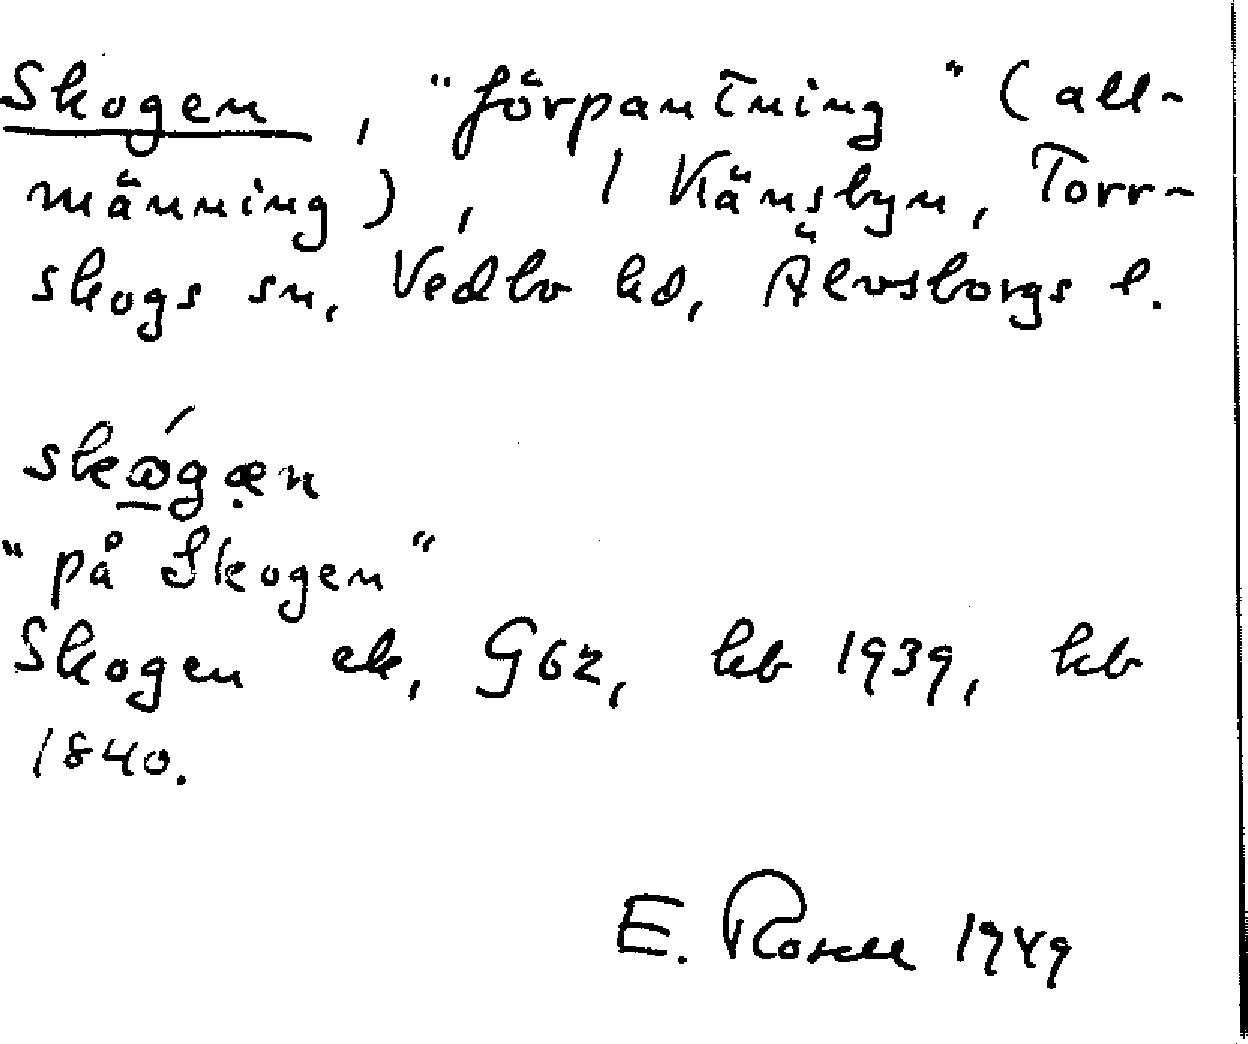 Skogen, "förpantning" (all-
männing), 1 Känsbyn, Torr-
skogs sn, Vedbo hd, Älvsborgs l.
"på Skogen"
Skogen ek, G62, kb 1939, kb
1840.
E. Rosell 1949